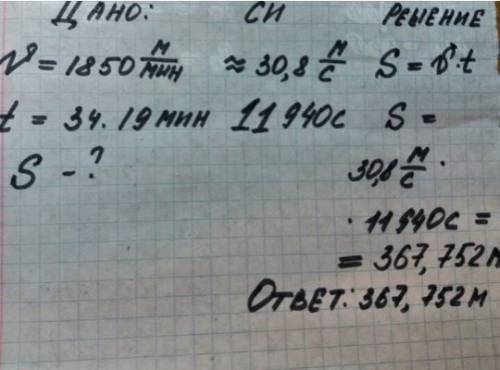 Дано: СИ Решение
v = 1850 м/мин ≈ 30,8 м/с S = v · t
t = 34.19 мин 11940с S =
S - ? 30,8 м/с ·
· 11940с =
= 367,752м
Ответ: 367,752м